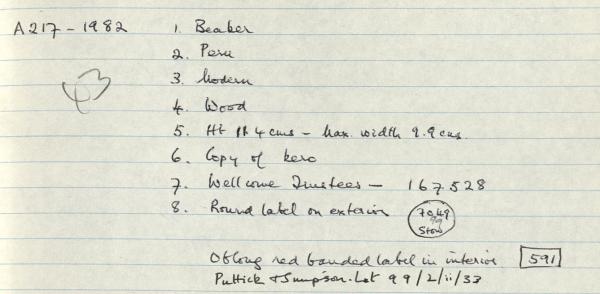 A217-1982 1. Beaker
2. Peru
3. Modern
4. Wood
5. Ht 11.4 cms - Max. width 9.9 cms.
6. Copy of kero
7. Wellcome Trustees - 167.528
8. Round label on exterior 7048 99 Stow
Oblong red banded label in interior 591
Puttick & Simpson. Lot 99/2/ii/33